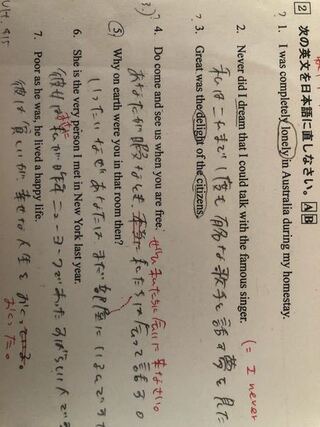 2 次の英文を日本語に直しなさい。 A B
? 1. I was completely lonely in Australia during my homestay.
2. Never did I dream that I could talk with the famous singer.
(= I never
私はこれまで1度も有名な歌手と話す夢を見た
? 3. Great was the delight of the citizens.
? 4. Do come and see us when you are free.
ぜひ私たちに会いに来なさい。
あなたが暇なとき
5. Why on earth were you in that room then?
いったいなぜあなたは
6. She is the very person I met in New York last year.
彼女は私が昨年ニューヨークであった
7. Poor as he was, he lived a happy life.
彼は貧しいが幸せな人生を
おくった。